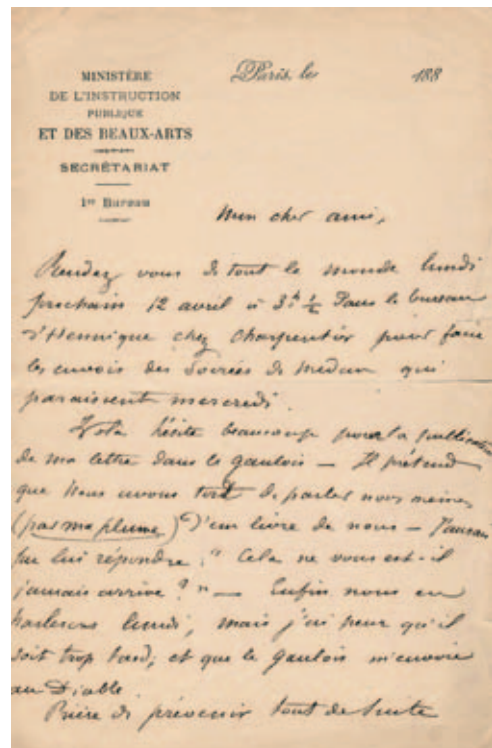 MINISTÈRE
DE L'INSTRUCTION
PUBLIQUE
ET DES BEAUX-ARTS
SECRÉTARIAT
1er Bureau
Paris, le 188
Mon cher ami,
Rendez vous de tout le monde lundi
prochain 12 avril à 3h ½ dans le bureau
d'Hennique chez Charpentier pour faire
les envois des Soirées de Medan qui
paraissent mercredi.
Zola hésite beaucoup pour la publication
de ma lettre dans le Gaulois — Il prétend
que nous avons tort de parler nous mêmes
(par ma plume) d'un livre de nous — J'aurais
pu lui répondre : "Cela ne vous est-il
jamais arrivé ?" — Enfin nous en
parlerons lundi, mais j'ai peur qu'il
soit trop tard, et que le Gaulois m'envoie
au Diable.
Prière de prévenir tout de suite